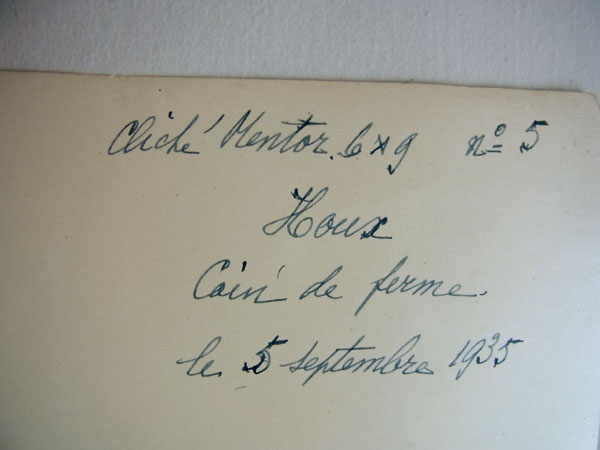 Cliché Mentor. 6x9 n° 5
Houx
Coin de ferme.
le 5 septembre 1935